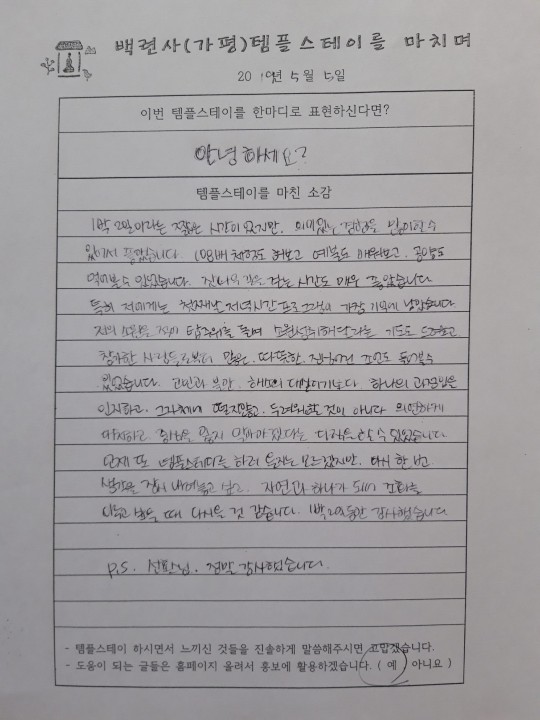 백련사(가평)템플스테이를 마치며
2019년 5월 5일
이번 템플스테이를 한마디로 표현하신다면?
안녕하세요?
템플스테이를 마친 소감
1박 2일이라는 짧은 시간이 었지만, 의미있는 경험을 할 수
있어서 좋았습니다. 108배 체험도 해보고 예불도 배워보고, 공양도
먹어볼 수 있었습니다. 같은 시간도 매우 좋았습니다
특히 저에게는 첫째날 저녁시간 프로그램이 가장 기억에 남았습니다
저의 소원을 적어 탑주위를 돌며 소원성취해달라는 기도도 드려보고
참가한 사람들로부터 많은, 따뜻한, 조언도 들을 수
있었습니다. 고민과 불안, 하나의 과정임을
인지하고, 그 자체에 떨지말고, 두려워할 것이 아니라 의연하게
잃지 않겠다는 수 있었습니다
언제 또 템플스테이를 하러 올지는 모르겠지만, 다시 한 번
생각을 내려놓고 싶고, 자연과 하나가 되어 조화를
이루고 싶을 때 다시올 것 같습니다. 1박2일동안 감사했습니다
p.s. 정말 감사했습니다.
- 템플스테이 하시면서 느끼신 것들을 진솔하게 말씀해주시면 고맙겠습니다.
- 도움이 되는 글들은 홈페이지 올려서 홍보에 활용하겠습니다. ( 예 / 아니요 )